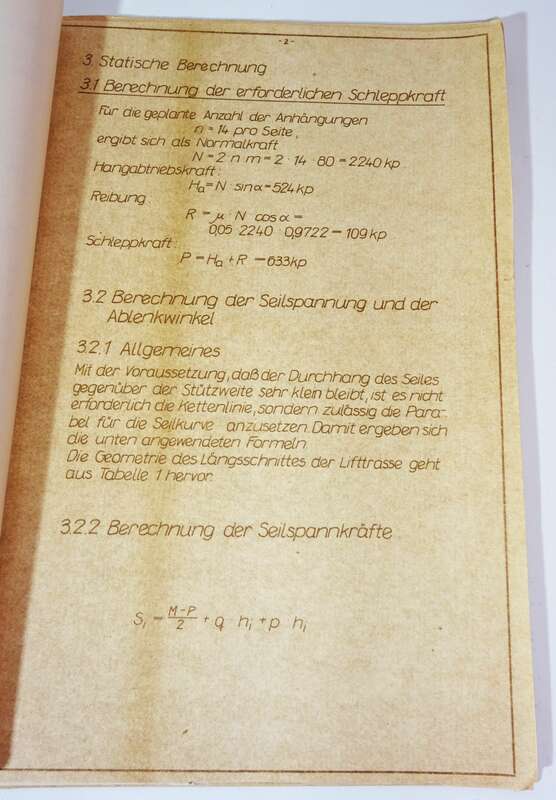 - 2 -
3. Statische Berechnung
3.1 Berechnung der erforderlichen Schleppkraft
Für die geplante Anzahl der Anhängungen
n = 14 pro Seite,
ergibt sich als Normalkraft
N = 2 n m = 2 · 14 · 80 = 2240 kp
Hangabtriebskraft:
Ha = N sin α = 524 kp
Reibung
R = μ · N cos α =
0,05 2240 0,9722 = 109 kp
Schleppkraft:
P = Ha + R = 633 kp
3.2 Berechnung der Seilspannung und der
Ablenkwinkel
3.2.1 Allgemeines
Mit der Voraussetzung, daß der Durchhang des Seiles
gegenüber der Stützweite sehr klein bleibt, ist es nicht
erforderlich die Kettenlinie, sondern zulässig die Para-
bel für die Seilkurve anzusetzen. Damit ergeben sich
die unten angewendeten Formeln
Die Geometrie des Längsschnittes der Lifttrasse geht
aus Tabelle 1 hervor.
3.2.2 Berechnung der Seilspannkräfte
Si = (M-P)/2 + q hi + p hi